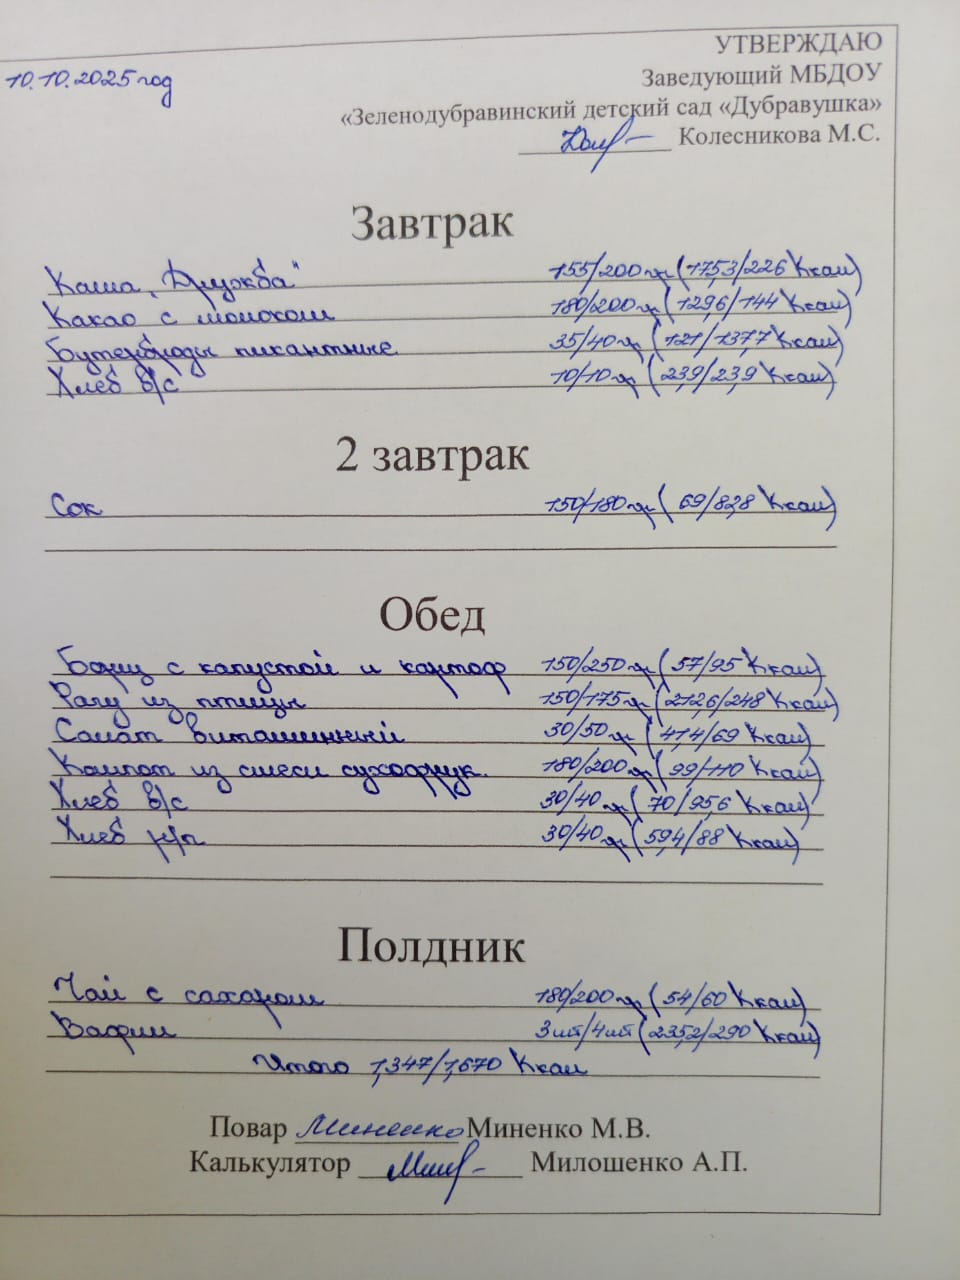 УТВЕРЖДАЮ
10.10.2025 год
Заведующий МБДОУ
«Зеленодубравинский детский сад «Дубравушка»
Колесникова М.С.
Завтрак
Каша „Дружба" 155/200 гр (175,3/226 Ккал)
Какао с молоком 180/200 гр (129,6/144 Ккал)
Бутерброды пикантные 35/40 гр (121/137,7 Ккал)
Хлеб в/с 10/10 гр (23,9/23,9 Ккал)
2 завтрак
Сок 150/180 гр (69/82,8 Ккал)
Обед
Борщ с капустой и картоф 150/250 гр (57/95 Ккал)
Рагу из птицы 150/175 гр (212,6/248 Ккал)
Салат витаминный 30/50 гр (41,4/69 Ккал)
Компот из смеси сухофрук. 180/200 гр (99/110 Ккал)
Хлеб в/с 30/40 гр (70/95,6 Ккал)
Хлеб р/п 30/40 гр (59,4/88 Ккал)
Полдник
Чай с сахаром 180/200 гр (54/60 Ккал)
Вафли 3 шт/4 шт (235,2/290 Ккал)
Итого 1,347/1,670 Ккал
Повар Миненко Миненко М.В.
Калькулятор Милошенко А.П.